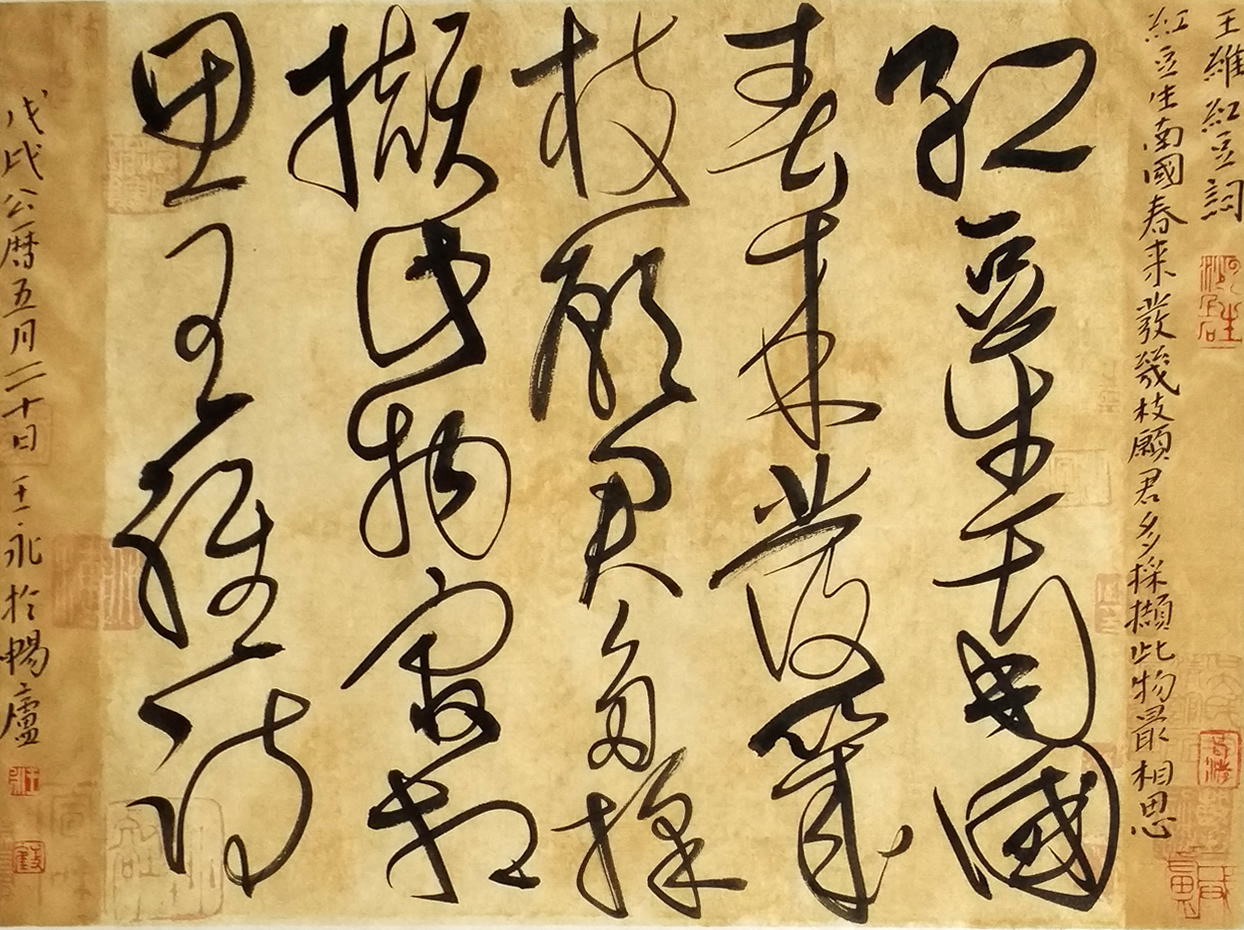 王維紅豆詞
紅豆生南國春来發幾枝願君多採擷此物最相思
紅豆生南國
春来發幾
枝願君多採
擷此物最相
思王維詩
戊戌公暦五月二十日王永於暢廬